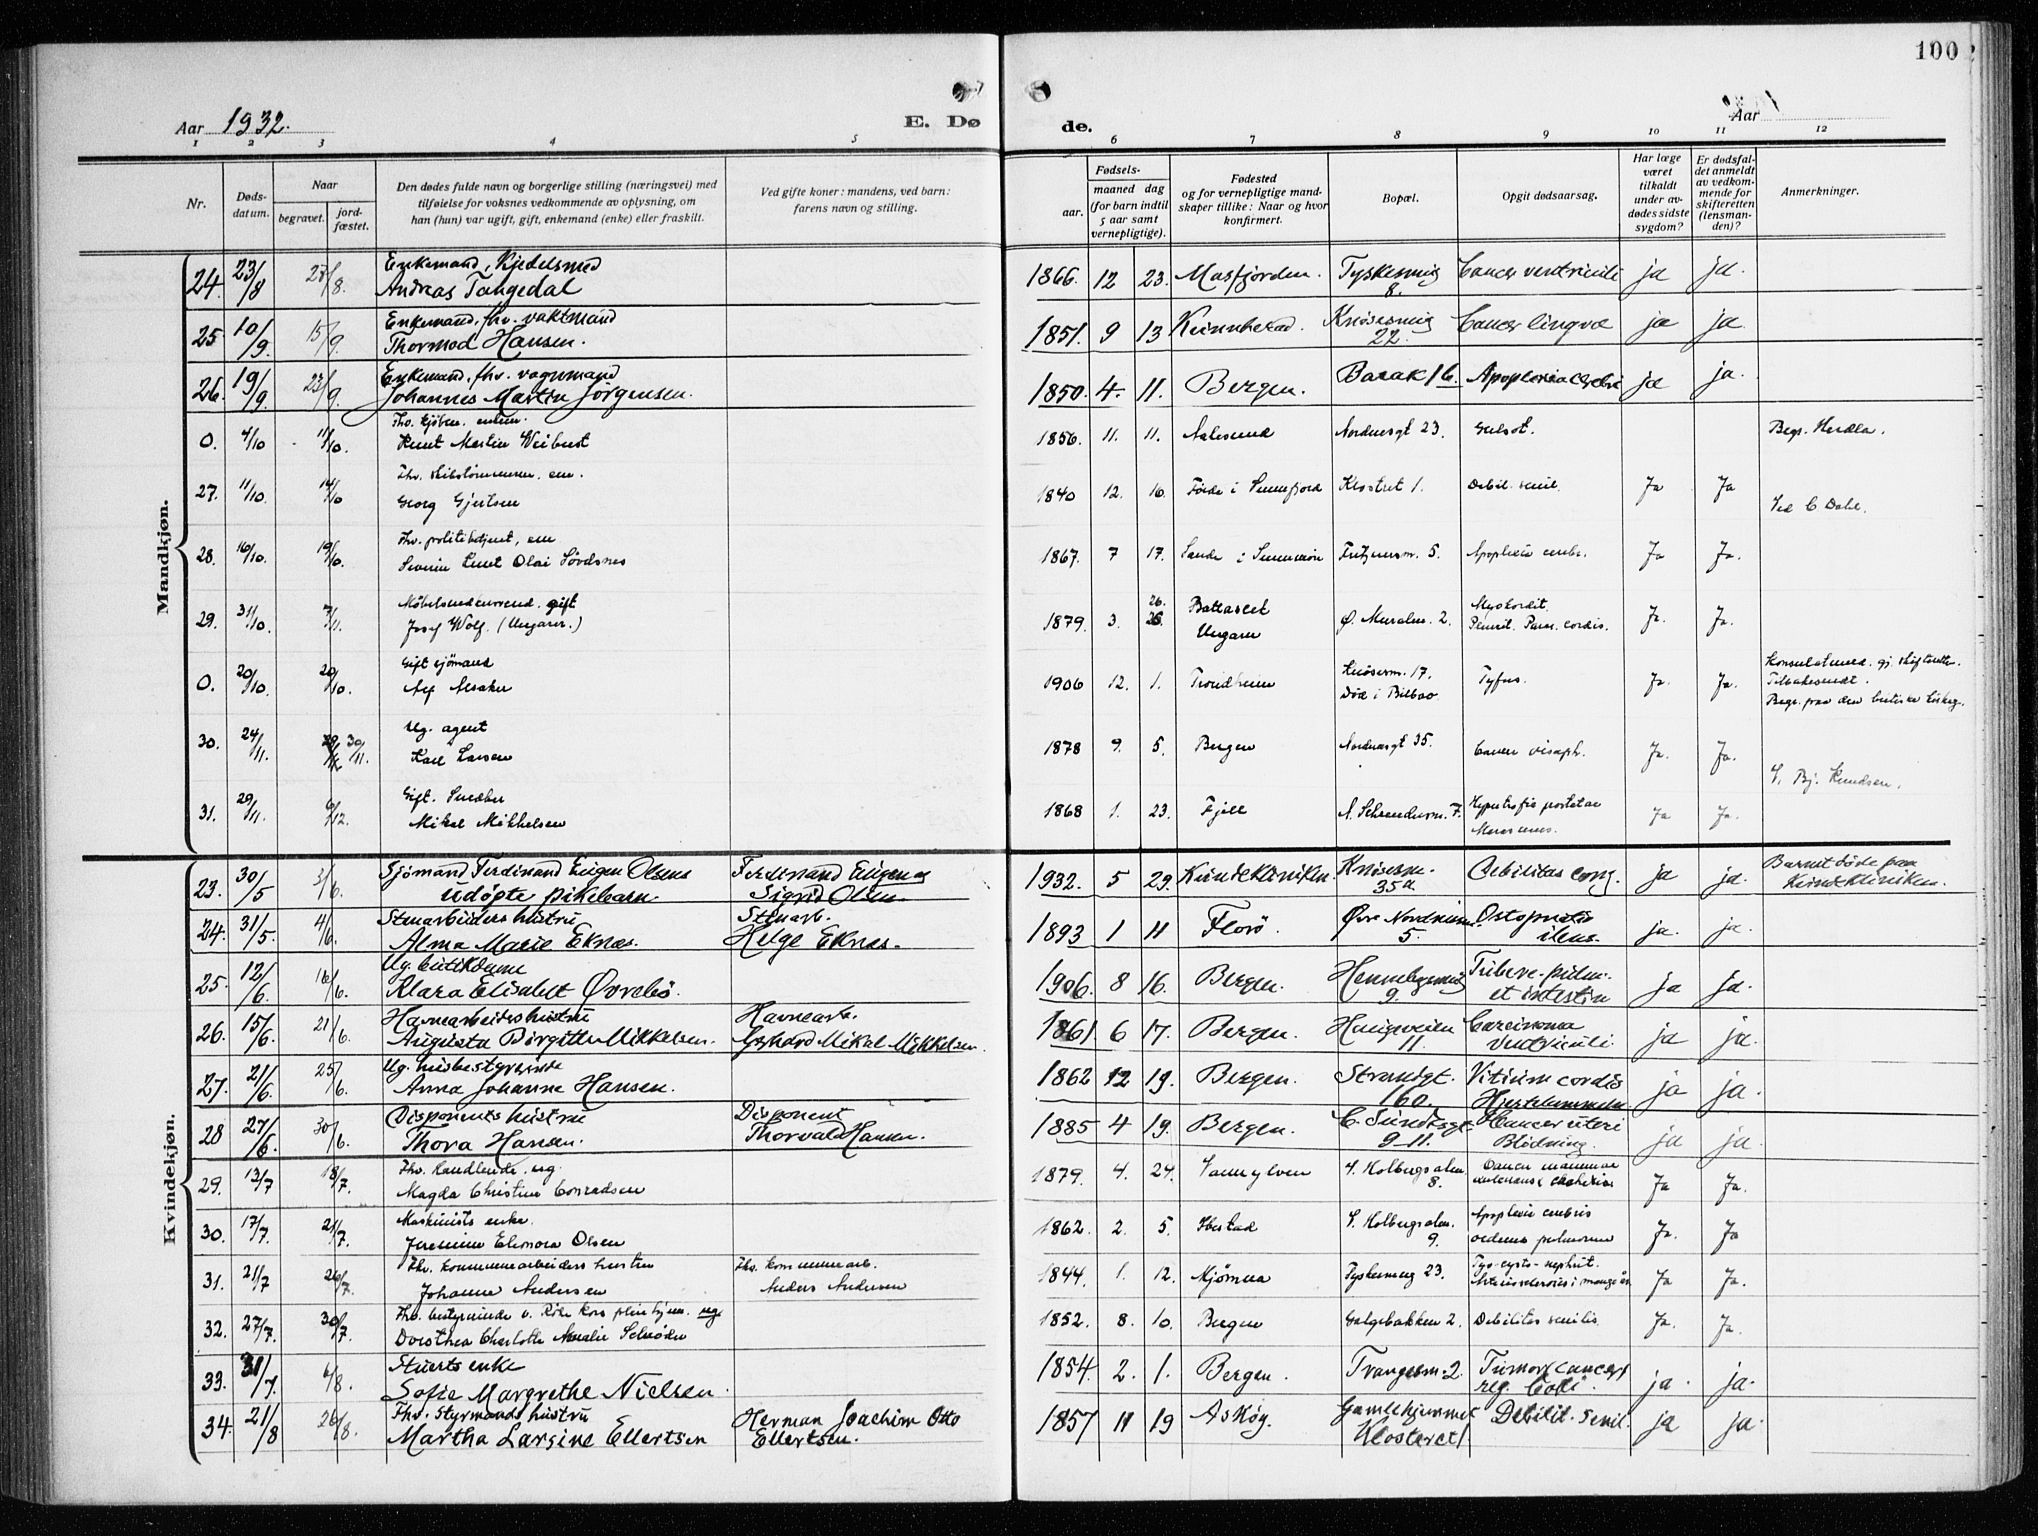 100
Aar 1932.
E. Dø
de.
Aar
1 2 3 4 5 6 7 8 9 10 11 12
Nr.
Døds-
datum.
Naar
begravet.
jord-
fæstet.
Den dødes fulde navn og borgerlige stilling (næringsvei) med
tilføielse for voksnes vedkommende av oplysning, om
han (hun) var ugift, gift, enkemand (enke) eller fraskilt.
Ved gifte koner: mandens, ved barn:
farens navn og stilling.
Fødsels-
aar.
maaned dag
(for barn indtil
5 aar samt
vernepligtige).
Fødested
og for vernepligtige mand-
skaper tillike: Naar og hvor
konfirmert.
Bopæl.
Opgit dødsaarsag.
Har læge
været
tilkaldt
under av-
dødes sidste
sygdom?
Er dødsfal-
det anmeldt
av vedkom-
mende for
skifteretten
(lensman-
den)?
Anmerkninger.
Mandkjøn.
Enkemand, Kjedelsmed
24. 23/8 27/8. Andreas Tangedal 1866. 12 23. Masfjorden. Tyskesmug 8. Cancer ventriculi ja ja.
Enkemand, fhv. vaktmand
25. 10/9. 15/9. Thormod Hansen. 1851. 9 13 Kvinnherad. Knøsesmug 22. Cancer lingva ja ja.
Enkemand, fhv. vognmand
26. 19/9. 23/9. Johannes Martin Jørgensen. 1850. 4. 11. Bergen. Barak 16. Apoplexia cerebri ja ja.
0. 4/10 11/10. Knut Martin 1856. 11. 11. Aalesund Nordnesgt 23. Gulsot. Begr. Herdla.
27. 11/10. 14/10 Georg Gjertsen 1840 12. 16. Førde i Sunnfjord Klostret 1. Debil. senil. Ja Ja
Ved C Dahl.
Fhv. politibetjent, em
28. 16/10. 19/10. Severin Knut Olai Søvdsnes 1867. 7 17. Sande i Sunnmøre 5. Apoplexia cerebr. Ja Ja.
gift
29. 31/10. 3/11. Josef Wolf. (Ungarer.) 1879. 3. 26. Ungarn Ø. Muralm. 2. Myokardit. cordis. Ja. Ja.
Gift sjømand
0. 20/10. 20/10. 1906 12. 1. Trondheim Knøsesm. 17. Død i Bilbao Tyfus. Ja. Ja.
Ug. agent
30. 24/11. 30/11. Karl Larsen 1878 9. 5. Bergen Nordnesgt 35. Ja. Ja.
V. Bj. Knudsen.
Gift. Snedker
31. 29/11. 6/12. Mikal Mikkelsen 1868 1. 23. Fjell Hypertrofia prostatae Ja Ja.
Kvindekjøn.
23. 30/5 3/6. Sjømand Ferdinand Eugen Olsens udøpte pikebarn. Ferdinand Eugen og Sigrid Olsen. 1932. 5 29. Kvindekliniken. Knøsesm. 35a Debilitas cong. ja ja. Barnet døde paa Kvindekliniken.
24. 31/5. 4/6. Stenarbeiders hustru Alma Marie Eknæs. Stenarb. Helge Eknæs. 1893 1 11 Florø. 5. ja. ja.
25. 12/6. 16/6. Ug. butikdame Klara Elisabet Øvrebø. 1906. 8 16. Bergen. 9. Tuberc. pulm. et intestin ja ja.
26. 15/6. 21/6. Havnearbeiders hustru Augusta Birgitte Mikkelsen. Havnearb. Gerhard Mikal Mikkelsen. 1861. 6 17. Bergen. Haugeveien 11. Carcinoma ventriculi ja ja.
27. 21/6. 25/6. Ug. husbestyrerinde Anna Johanne Hansen. 1862 12 19. Bergen. Strandgt. 160. Vitium cordis Hjertelammelse ja ja.
28 27/6. 30/6. Disponents hustru Thora Hansen. Disponent Thorvald Hansen. 1885 4 19. Bergen. C. Sundtsgt. 9-11. Cancer uteri Blødning. ja ja.
29. 13/7 18/7. Fhv. handlende. ug. Magda Christine Conradsen 1879. 4. 24. Vannylven 8. Cancer mammae Ja Ja.
30. 17/7. 21/7. Maskinists enke. Elenora Olsen 1862. 2. 5. Ibestad 9. Apoplexia cerebris oedema pulmonum Ja. Ja
31. 21/7 26/7. Fhv. kommunearbeiders hustru Johanne Andersen Fhv. kommunearb. Anders Andersen 1844. 1. 12. Mjømna Tyskesmug 23. Ja Ja
32. 27/7. 30/7 Fhv. bestyrerinde v. Røde Kors pleiehjem. ug Dorothea Charlotte Amalie Schrøder 1852. 8. 10. Bergen Galgebakken 2. Debilitas senilis. Ja. Ja.
33. 31/7. 6/8. Stuerts enke Sofie Margrethe Nielsen. 1854. 2. 1. Bergen. Trangesm. 2. Tumor (cancer) reg. Coli. ja. ja.
34. 21/8 26/8. Fhv. Styrmands hustru Martha Larsine Ellertsen Herman Joachim Otto Ellertsen. 1857 11 19 Askøy. Gamlehjemmet Klosteret 1 Debilit. senil. ja ja.